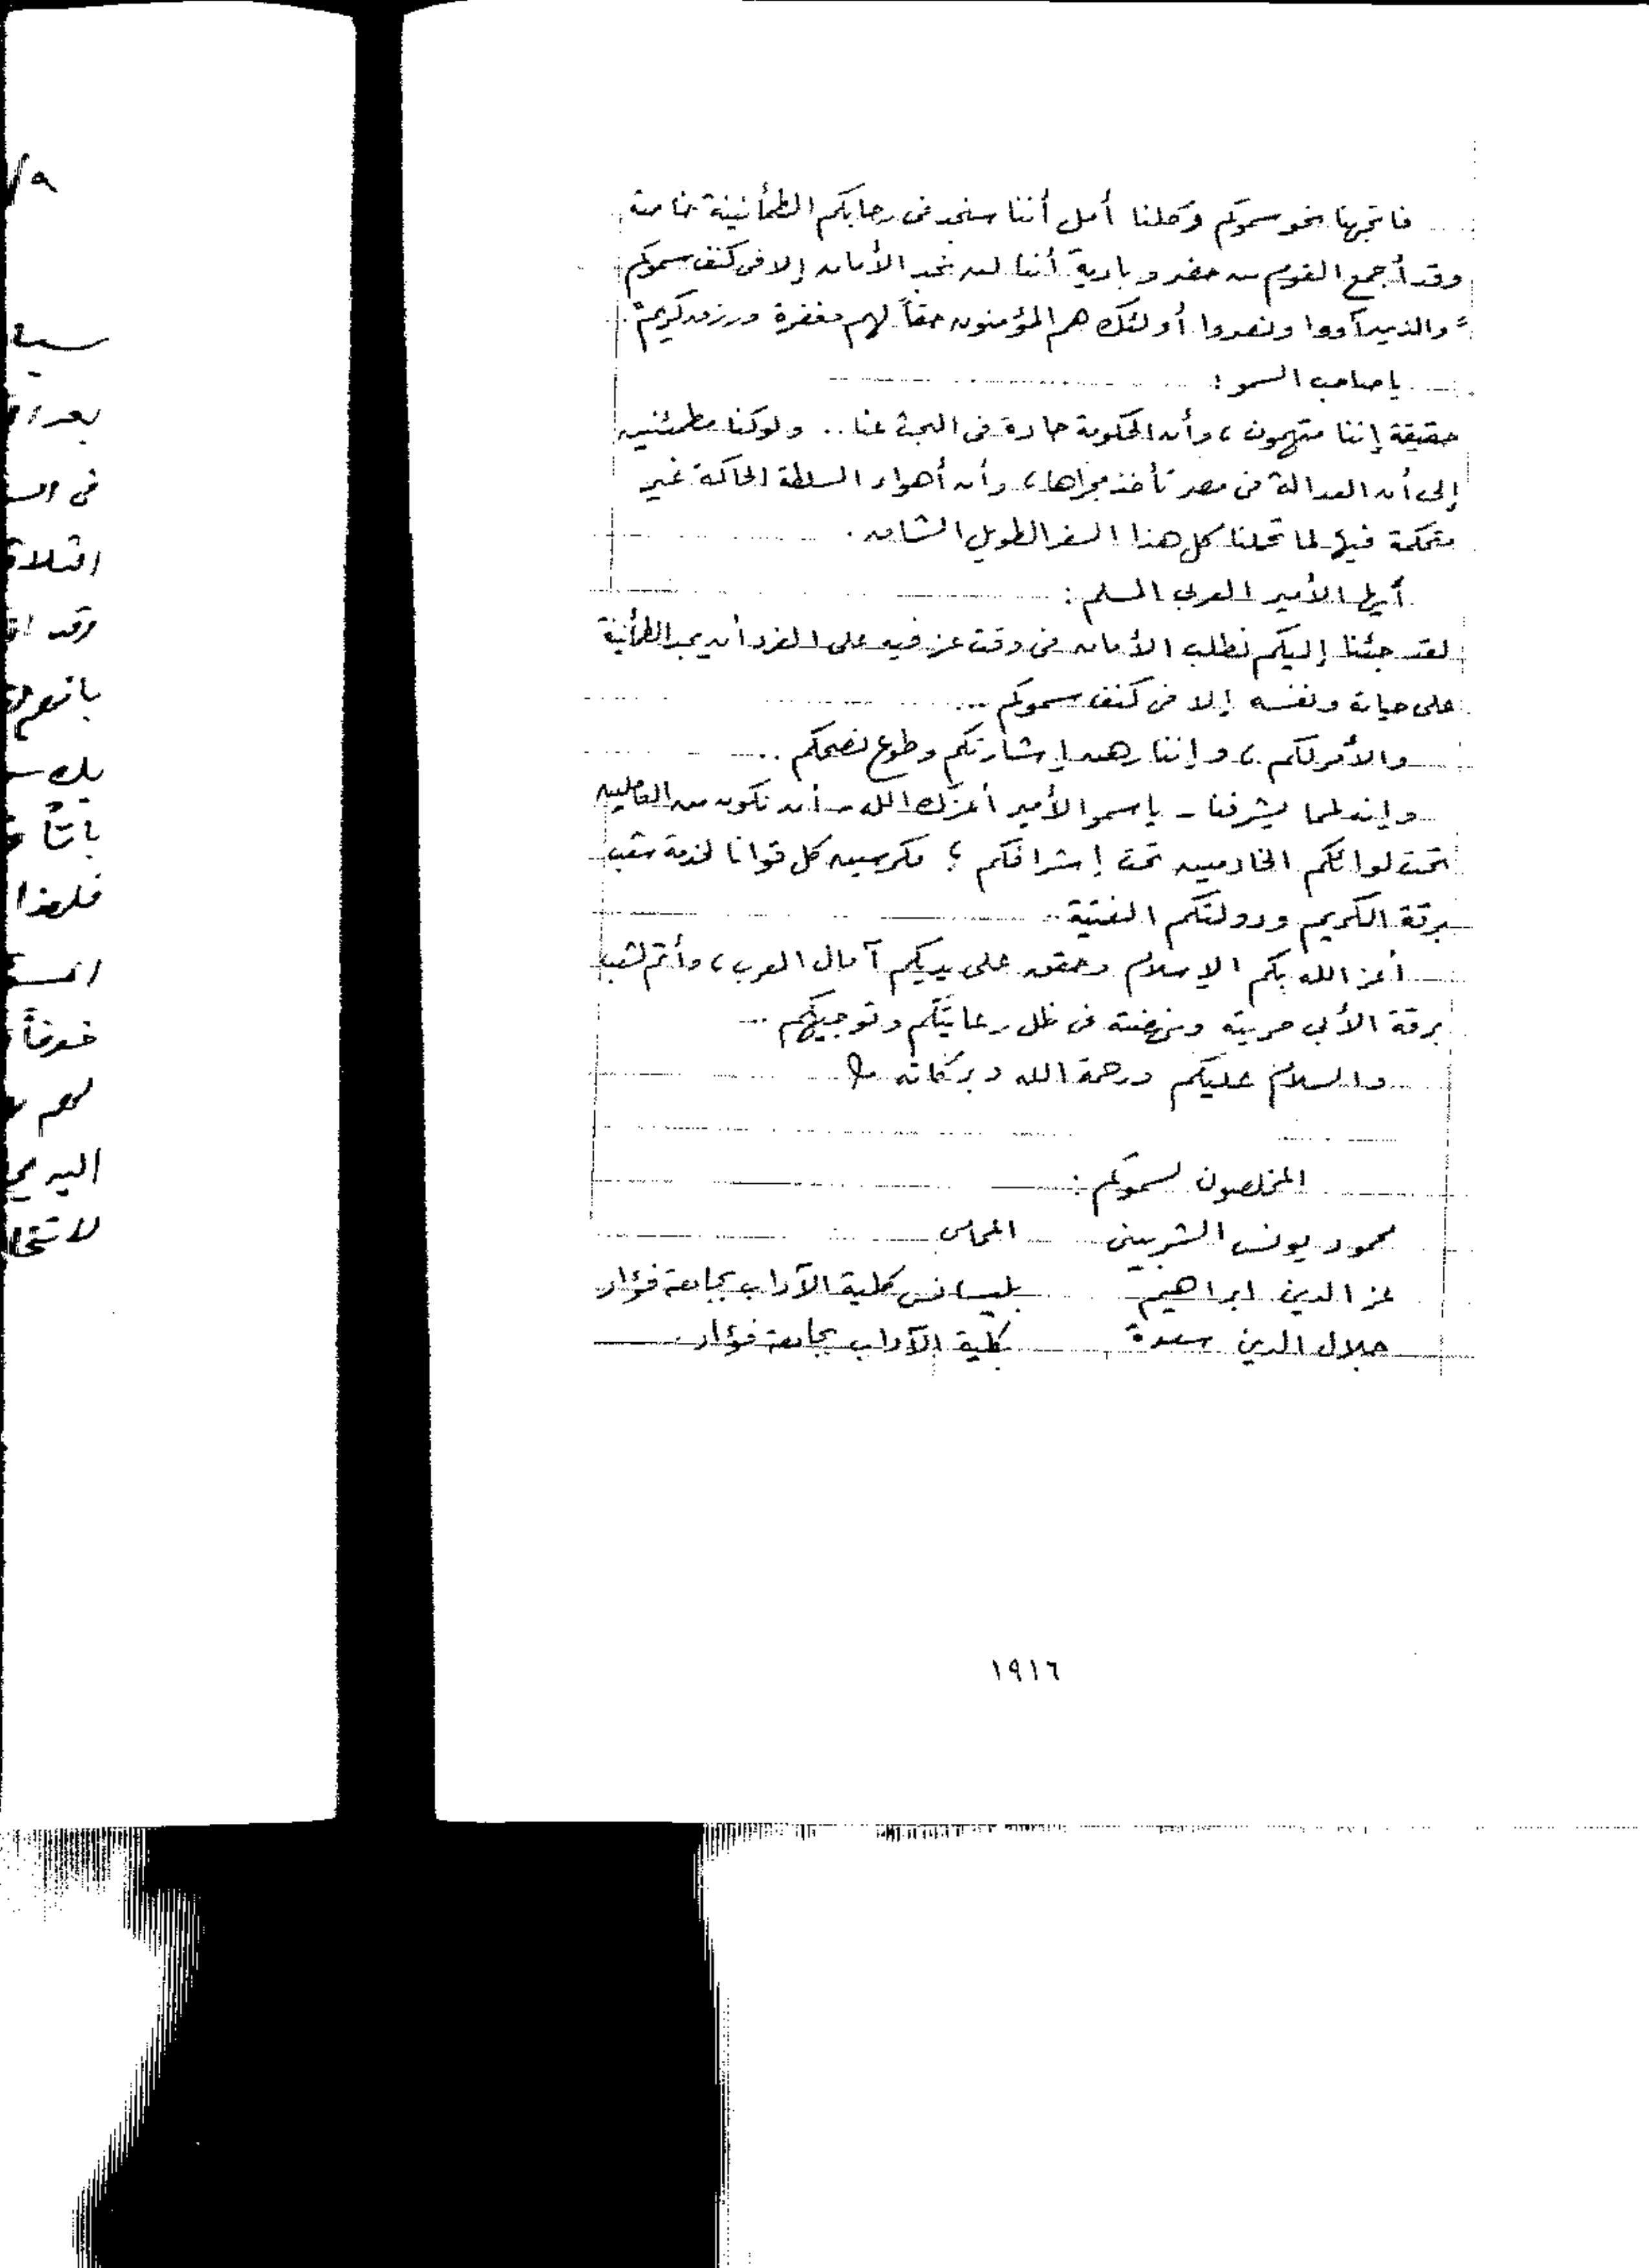 فاتجهنا نحو سموكم وكلنا أمل أننا سنجد فى رحابكم الطمأنينة خاصة
وقد أجمع القوم من حضر وبادية أننا لن نجد الأمان إلا فى كنف سموكم
"والذين آووا ونصروا أولئك هم المؤمنون حقاً لهم مغفرة ورزق كريم"
يا صاحب السمو :
حقيقة إننا متهمون ، وأن الحكومة جادة فى البحث عنا .. ولو كنا مطمئنين
إلى أن العدالة فى مصر تأخذ مجراها ، وأن أهواء السلطة الحاكمة غير
متحكمة فيها لما تحملنا كل هذا السفر الطويل الشاق .
أيها الأمير العربى المسلم :
لقد جئنا إليكم نطلب الأمان فى وقت عز فيه على الفرد أن يجد الطمأنينة
على حياته ونفسه إلا فى كنف سموكم ...
والأمر لكم ، وإننا رهن إشارتكم وطوع نصحكم ..
وإنه لمما يشرفنا - يا سمو الأمير أعزك الله - أن نكون من العاملين
تحت لوائكم الخادمين تحت إشرافكم ؛ مكرسين كل قوانا لخدمة شعب
برقة الكريم ودولتكم الفتية ..
أعز الله بكم الإسلام وحقق على يديكم آمال العرب ، وأتم لشعب
برقة الأبى حريته ونهضته فى ظل رعايتكم وتوجيهكم ...
والسلام عليكم ورحمة الله وبركاته
المخلصون لسموكم :
محمود يونس الشربينى المحامى
عز الدين ابراهيم بليسانس كلية الآداب بجامعة فؤاد
جلال الدين سعدة بكلية الآداب بجامعة فؤاد
١٩١٦
٩/
فى
وقد
باشا
فلهذا
خوفاً
لهم